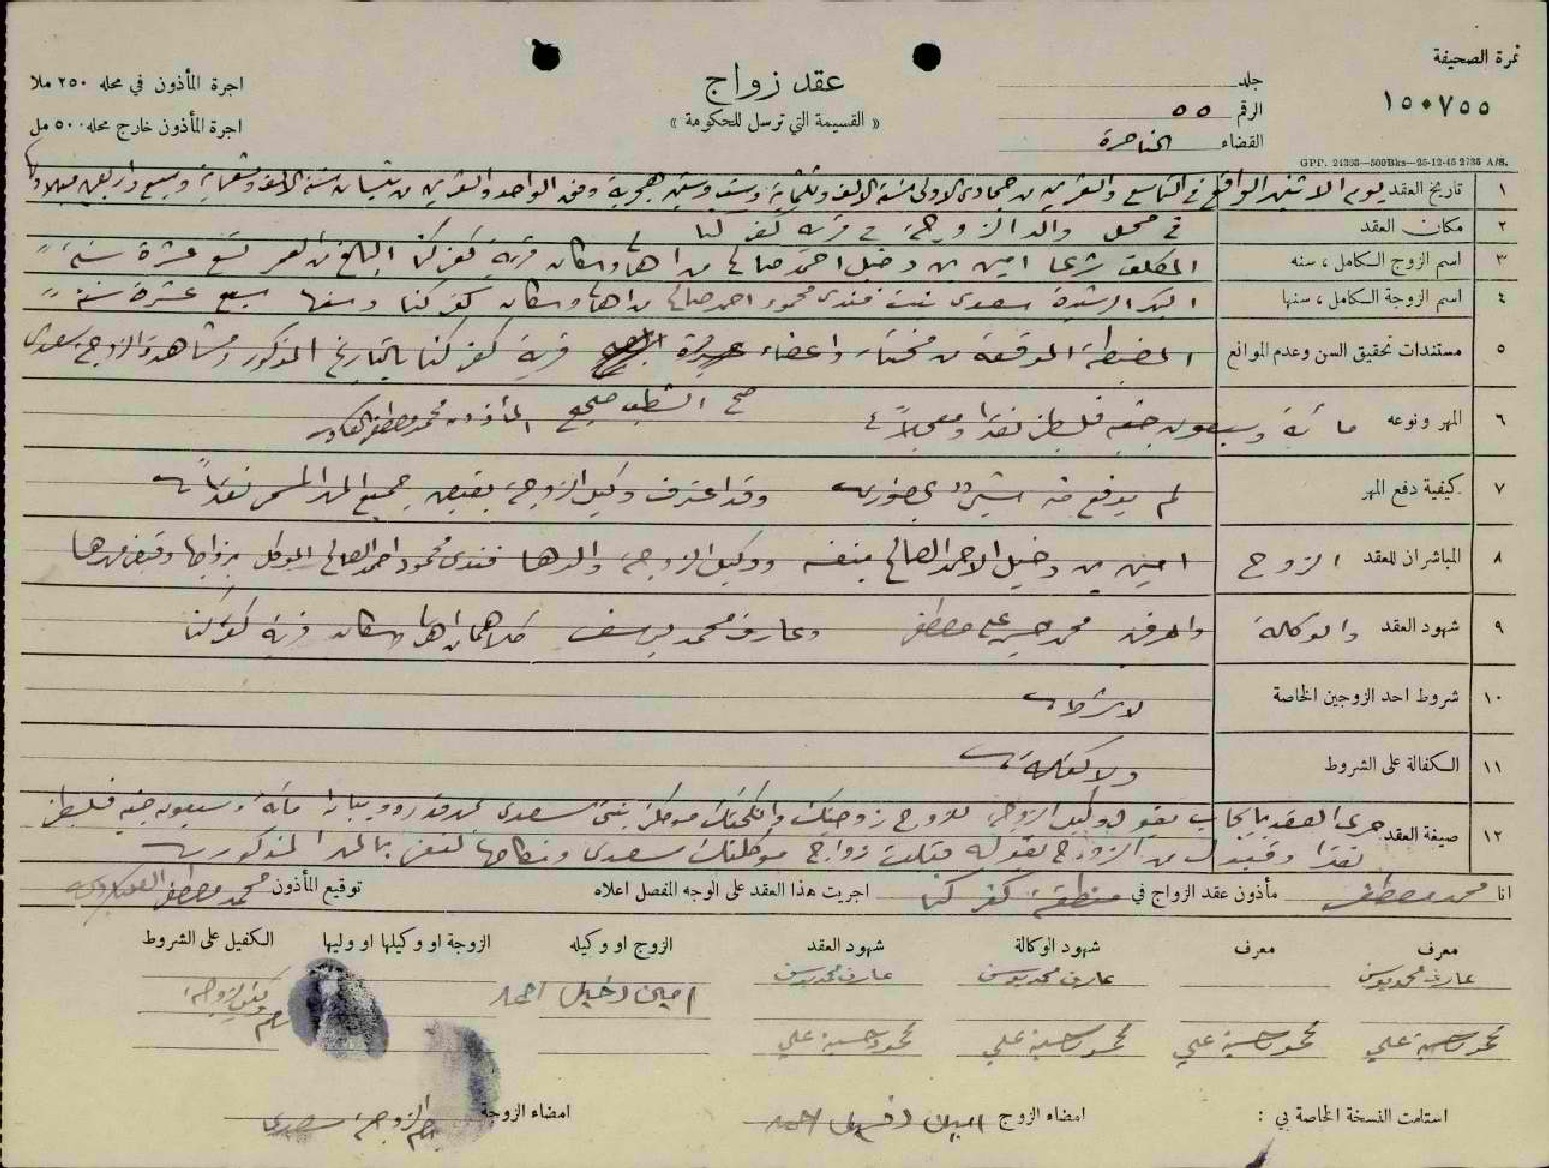 نمرة الصحيفة
١٥٠٧٥٥
جلد
الرقم ٥٥
القضاء الناصرة
عقد زواج
« القسيمة التي ترسل للحكومة »
اجرة المأذون في محله ٢٥٠ ملا
اجرة المأذون خارج محله ٥٠٠ مل
GPP. 24363—500Bks—25-12-45 2735 A/8.
١ تاريخ العقد يوم الاثنين الواقع في التاسع والعشرين من جمادى الاولى سنة الالف وثلثماية وست وستين هجرية وفق الواحد والعشرين من نيسان سنة الالف وتسعماية وسبع واربعين ميلادية
٢ مكان العقد في محل والد الزوجة في قرية كفر كنا
٣ اسم الزوج الكامل ، سنه المكلف شرعا امين بن دخيل احمد صالح من اهالي وسكان قرية كفر كنا البالغ من العمر تسع عشرة سنة
٤ اسم الزوجة الكامل ، سنها البكر الرشيدة سعدى بنت فندي محمود احمد صالح من اهالي وسكان كفر كنا وسنها سبع عشرة سنة
٥ مستندات تحقيق السن وعدم الموانع المضبطة الموقعة من مختار واعضاء قرية كفر كنا بالتاريخ المذكور ومشاهدة الزوجة سعدى
صح الشطب صحيح المأذون محمد مصطفى
٦ المهر ونوعه مائة وسبعون جنيه فلسطيني نقدا ومعجلاً
٧ كيفية دفع المهر لم يدفع منه شيء بحضوري وقد اعترف وكيل الزوجة بقبض جميع المهر المسمى نقداً
٨ المباشران للعقد الزوج امين بن دخيل الاحمد الصالح بنفسه ووكيل الزوجة والدها فندي محمود احمد الصالح الموكل بزواجها وقبض مهرها
٩ شهود العقد والوكالة والمعرفين محمد حسين علي مصطفى وعارف محمد يوسف كلاهما من اهالي وسكان قرية كفر كنا
١٠ شروط احد الزوجين الخاصة لا شرط
١١ الكفالة على الشروط ولا كفالة
١٢ صيغة العقد جرى العقد بايجاب بقول وكيل الزوجة للزوج زوجتك وانكحتك موكلتي بنتي سعدى بمهر قدره وبيانه مائة وسبعون جنيه فلسطيني
نقدا وقبول من الزوج بقوله قبلت زواج موكلتك سعدى ونكاحها لنفسي بالمهر المذكور
انا محمد مصطفى مأذون عقد الزواج في منطقة كفر كنا اجريت هذا العقد على الوجه المفصل اعلاه توقيع المأذون محمد مصطفى
معرف معرف شهود الوكالة شهود العقد الزوج او وكيله الزوجة او وكيلها او وليها الكفيل على الشروط
عارف محمد يوسف عارف محمد يوسف عارف محمد يوسف امين دخيل احمد وكيل الزوجة
محمد حسين علي محمد حسين علي محمد حسين علي محمد حسين علي
استلمت النسخة الخاصة بي : امضاء الزوج امين دخيل احمد امضاء الزوجة الزوجة سعدى